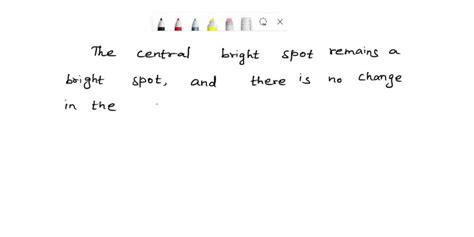 The central bright spot remains a
bright spot, and there is no change
in the